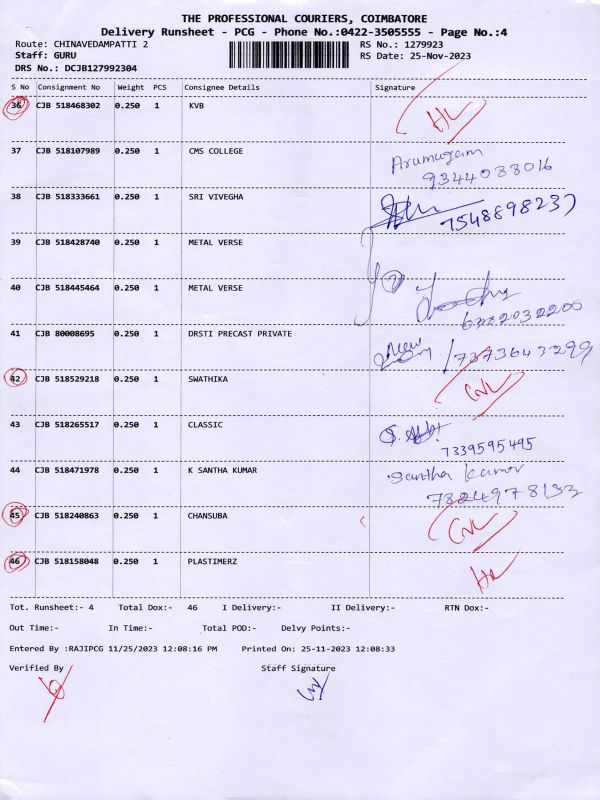 THE PROFESSIONAL COURIERS, COIMBATORE
Delivery Runsheet - PCG - Phone No.:0422-3505555 - Page No.:4
Route: CHINAVEDAMPATTI 2 RS No.: 1279923
Staff: GURU RS Date: 25-Nov-2023
DRS No.: DCJB127992304
S No Consignment No Weight PCS Consignee Details Signature
36 CJB 518468302 0.250 1 KVB
37 CJB 518107989 0.250 1 CMS COLLEGE Arumugam
9344088016
38 CJB 518333661 0.250 1 SRI VIVEGHA
7548898237
39 CJB 518428740 0.250 1 METAL VERSE
40 CJB 518445464 0.250 1 METAL VERSE
41 CJB 80008695 0.250 1 DRSTI PRECAST PRIVATE
7373643299
42 CJB 518529218 0.250 1 SWATHIKA
43 CJB 518265517 0.250 1 CLASSIC
7339595495
44 CJB 518471978 0.250 1 K SANTHA KUMAR Santha kumar
7824978133
45 CJB 518240863 0.250 1 CHANSUBA
46 CJB 518158048 0.250 1 PLASTIMERZ
Tot. Runsheet:- 4 Total Dox:- 46 I Delivery:- II Delivery:- RTN Dox:-
Out Time:- In Time:- Total POD:- Delvy Points:-
Entered By :RAJIPCG 11/25/2023 12:08:16 PM Printed On: 25-11-2023 12:08:33
Verified By Staff Signature